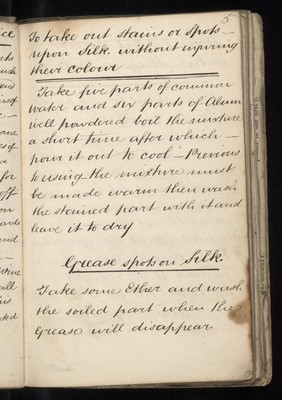 5
To take out stains or Spots —
upon Silk without injuring
their colour
Take five parts of common
Water and six parts of Alum
well powdered boil the mixture
a short time after which —
pour it out to cool — Previous
to using the mixture must
be made warm then wash
the stained part with it and
leave it to dry
Grease spots on Silk
Take some Ether and wash
the soiled part when the
Grease will disappear